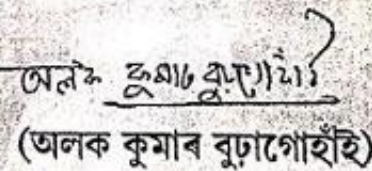 অলক কুমাৰ বুঢ়াগোহাঁই
(অলক কুমাৰ বুঢ়াগোহাঁই)